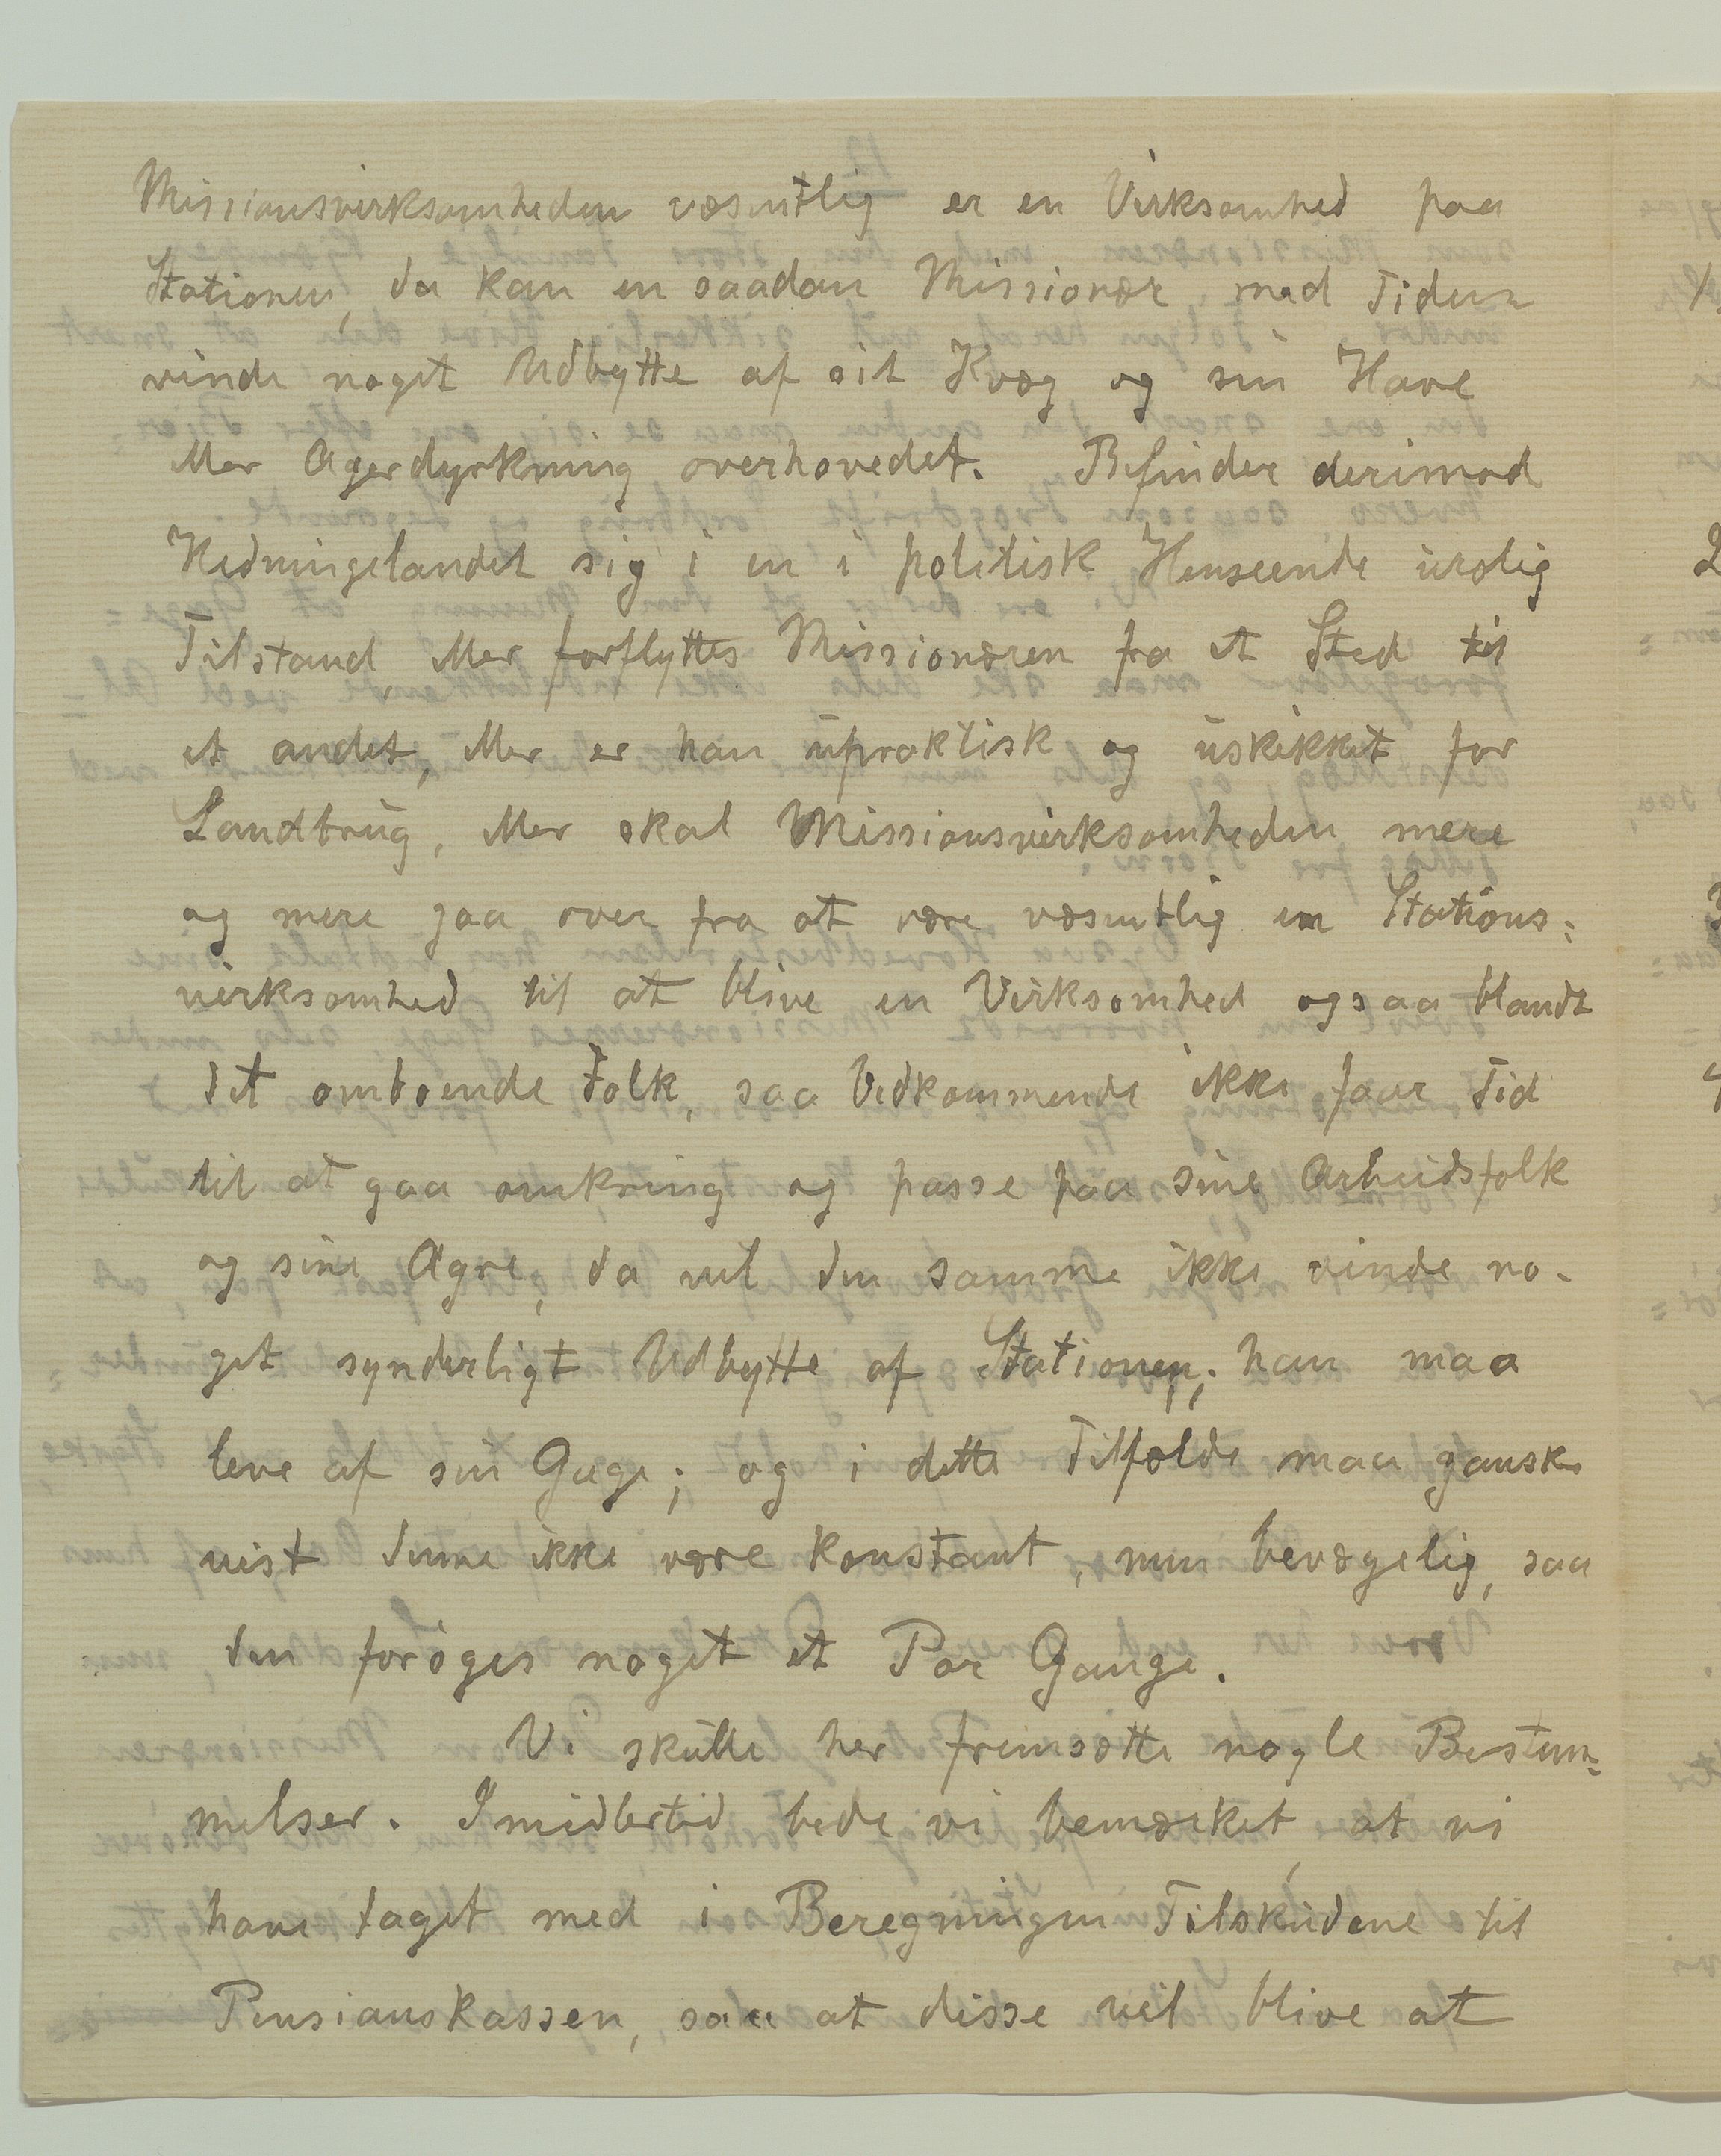 Missionsvirksomheden væsentlig er en Virksomhed paa
Stationen, da kan en saadan Missionær med Tiden
vinde noget Udbytte af sit Kvæg og sin Have
eller Agerdyrkning overhovedet. Befinder derimod
Hedningelandet sig i en i politisk Henseende urolig
Tilstand eller forflyttes Missionæren fra et Sted til
et andet, eller er han upraktisk og uskikket for
Landbrug, eller skal Missionsvirksomheden mere
og mere gaa over fra at være væsentlig en Stations=
virksomhed til at blive en Virksomhed ogsaa blandt
det omboende Folk, saa Vedkommende ikke faar Tid
til at gaa omkring og passe paa sine Arbeidsfolk
og sine Agre, da vil den samme ikke vinde no-
get synderligt Udbytte af Stationen; han maa
leve af sin Gage; og i dette Tilfælde maa ganske
vist denne ikke være konstant, men bevægelig, saa
den forøges noget et Par Gange.
Vi skulle her fremsætte nogle Bestem=
melser. Imidlertid bede vi bemærket, at vi
have taget med i Beregningen Tilskudene til
Pensionskassen, saa at disse vil blive at